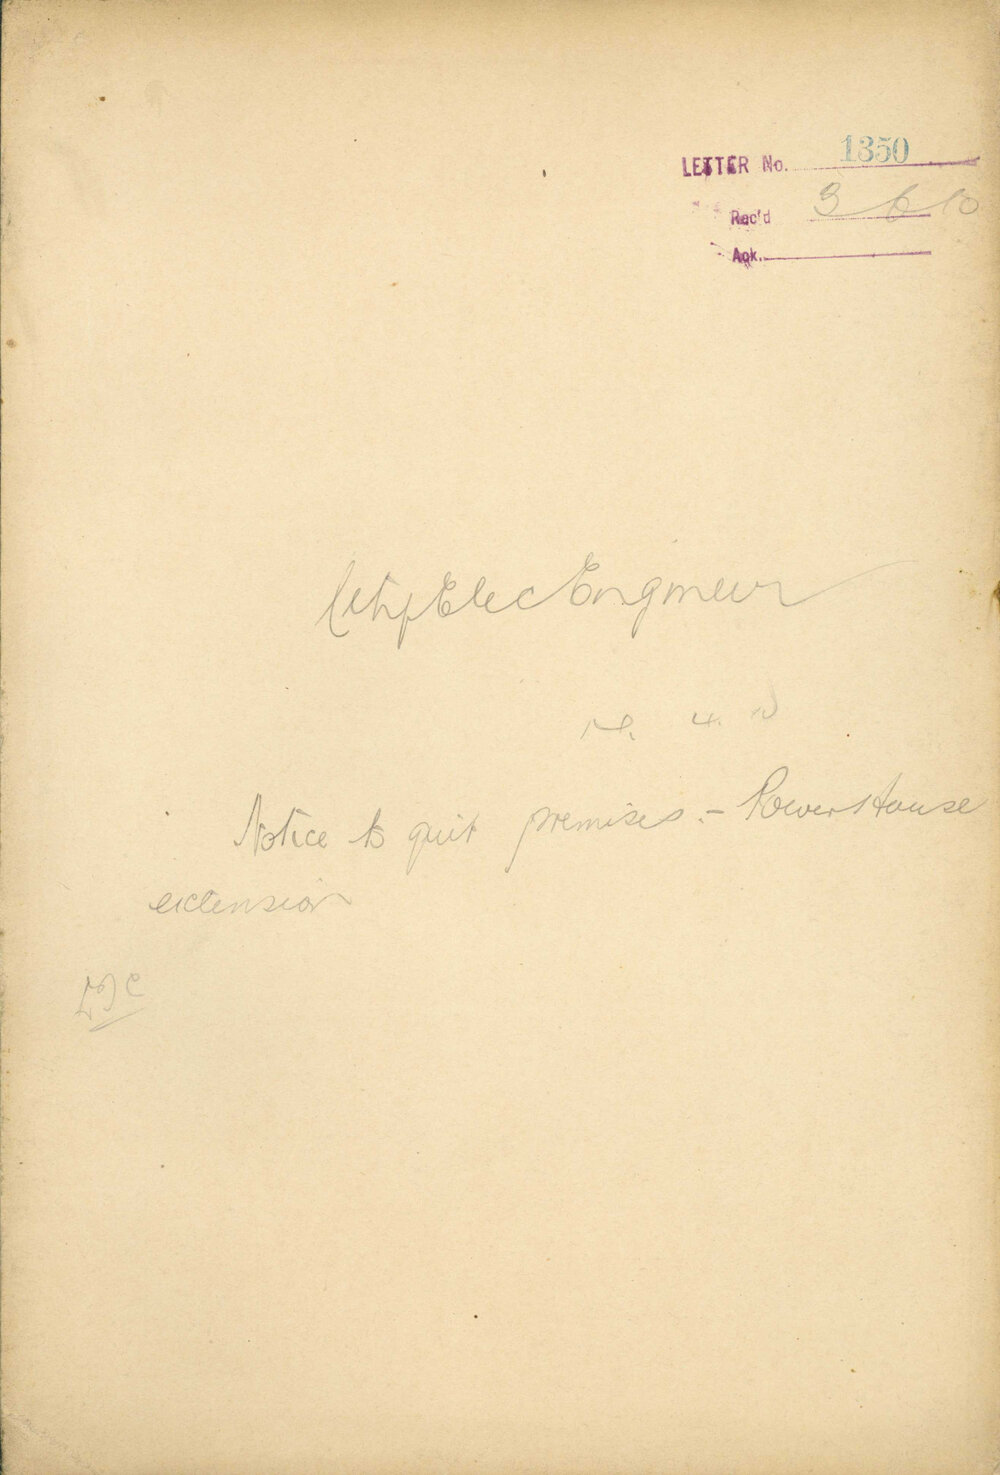 LETTER No. 1350
Rec'd 3 6 10
Ack.
City Elec Engineer
Notice to quit premises :- Power House
extension